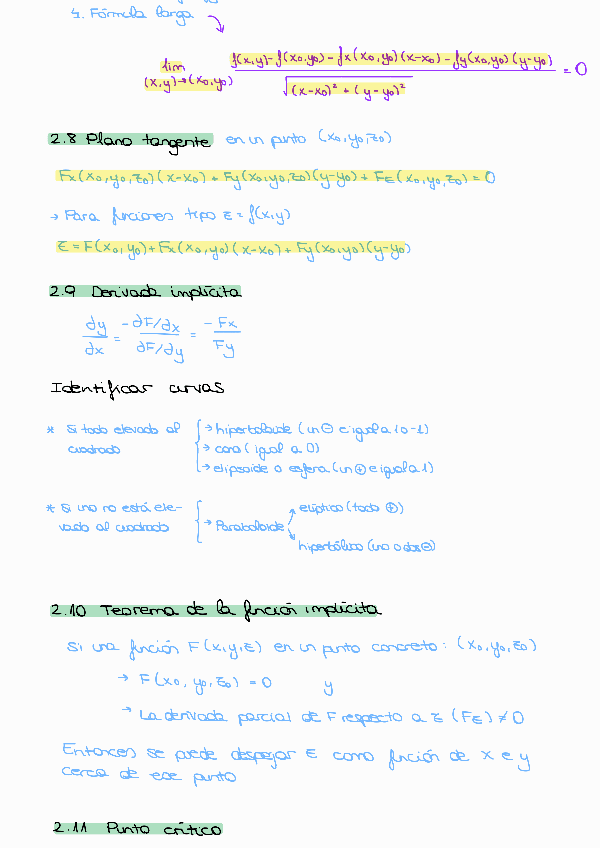 4. Fórmula larga
lim (x,y)→(x₀,y₀) f(x,y)-f(x₀,y₀)-fx(x₀,y₀)(x-x₀)-fy(x₀,y₀)(y-y₀) / √(x-x₀)²+(y-y₀)² = 0
2.8 Plano tangente en un punto (x₀,y₀,z₀)
Fx(x₀,y₀,z₀)(x-x₀)+Fy(x₀,y₀,z₀)(y-y₀)+Fz(x₀,y₀,z₀)=0
→ Para funciones tipo z=f(x,y)
z=F(x₀,y₀)+Fx(x₀,y₀)(x-x₀)+Fy(x₀,y₀)(y-y₀)
2.9 Derivada implícita
∂y/∂x = -∂F/∂x / ∂F/∂y = -Fx/Fy
Identificar curvas
* Si todo elevado al cuadrado
→ hiperboloide (un ⊖ e igual a 1 o -1)
→ cono (igual a 0)
→ elipsoide o esfera (un ⊕ e igual a 1)
* Si uno no está ele-
vado al cuadrado
→ Paraboloide
elíptico (todo ⊕)
hiperbólico (uno o dos ⊖)
2.10 Teorema de la función implícita
Si una función F(x,y,z) en un punto concreto: (x₀,y₀,z₀)
→ F(x₀,y₀,z₀)=0 y
→ La derivada parcial de F respecto a z (Fz) ≠ 0
Entonces se puede despejar z como función de x e y
cerca de ese punto
2.11 Punto crítico